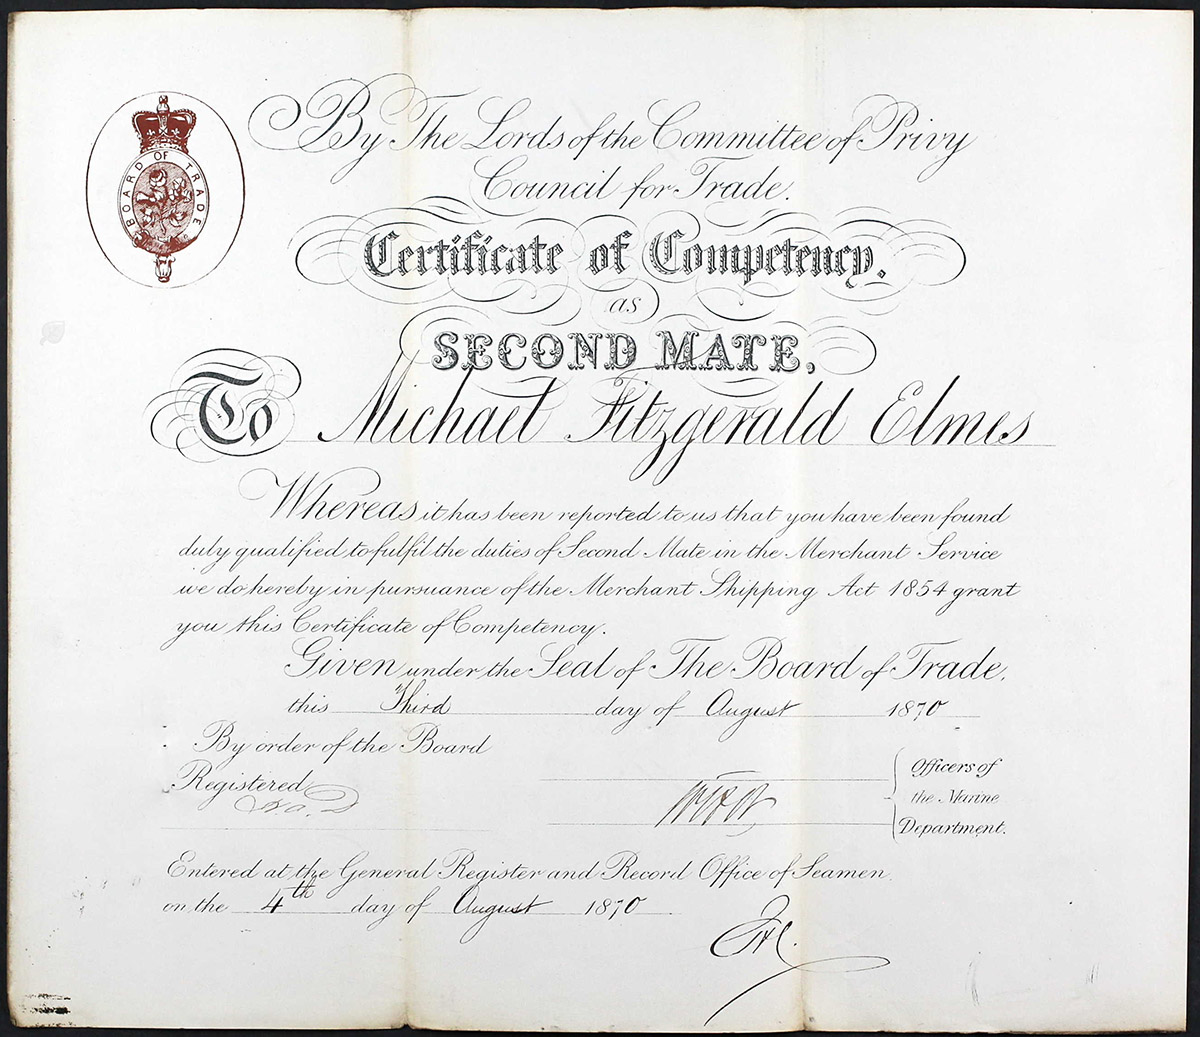 BOARD OF TRADE
By The Lords of the Committee of Privy
Council for Trade.
Certificate of Competency.
as
SECOND MATE.
To Michael Fitzgerald Elmes
Whereas it has been reported to us that you have been found
duly qualified to fulfil the duties of Second Mate in the Merchant Service
we do hereby in pursuance of the Merchant Shipping Act 1854 grant
you this Certificate of Competency.
Given under the Seal of The Board of Trade.
this Third day of August 1870
By order of the Board
Registered
Officers of
the Marine
Department.
Entered at the General Register and Record Office of Seamen
on the 4th day of August 1870